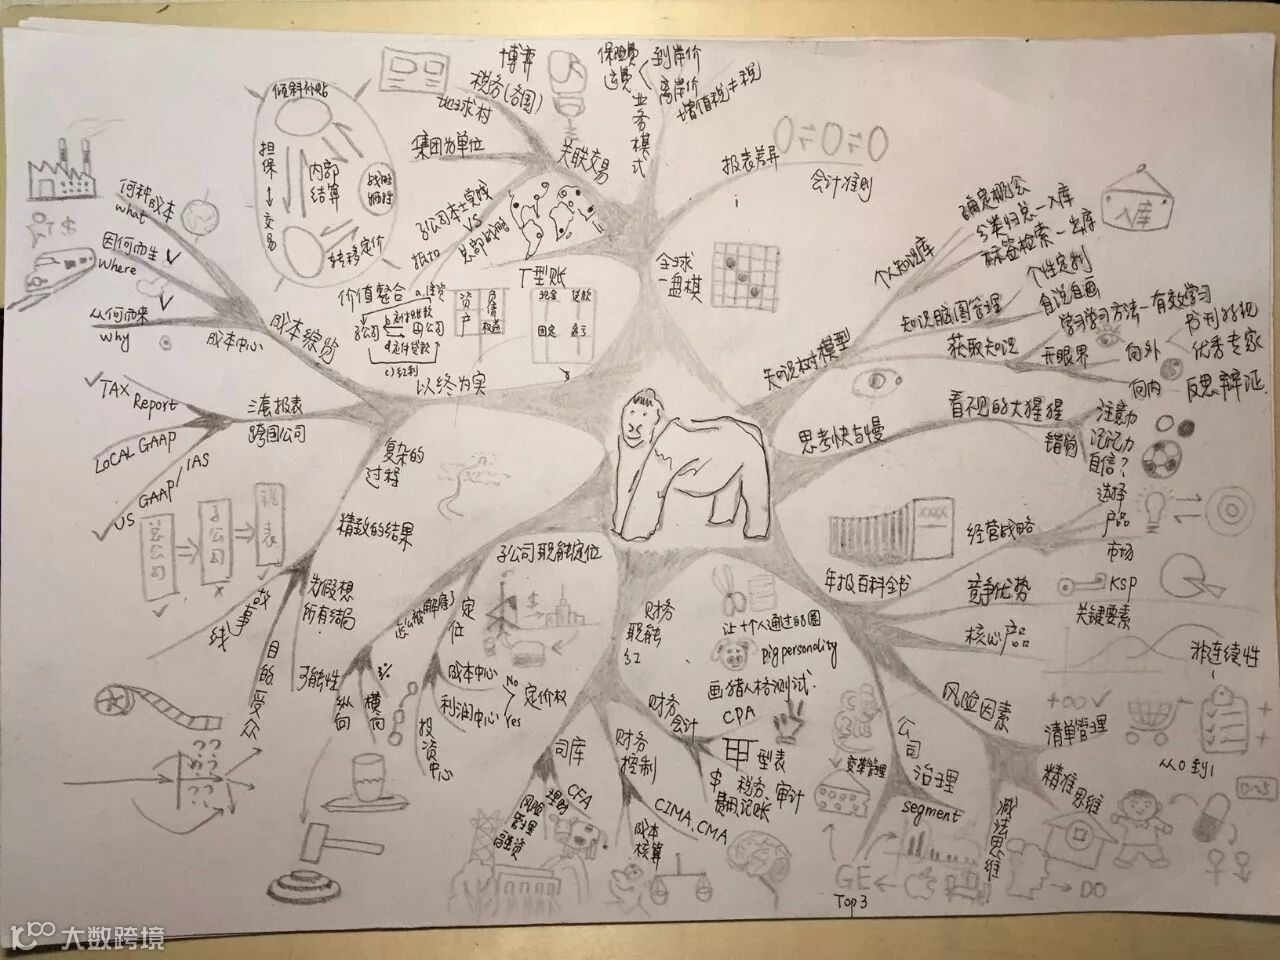 倾斜补贴
担保
交易
内部
结算
战时
牺牲
转移定价
博弈
税务(各国)
地球村
集团为单位
关联交易
子公司本土实践
VS
总部战略
抵扣
保险费
运费
到岸价
离岸价
增值税≠税
业务模式
报表差异
会计准则
全球
一盘棋
何种成本
what
因何而生
Where
从何而来
why
成本中心
价值整合
子公司
母公司
c)红利
T型账
资
产
负债
权益
现金
贷款
固定
以终为实
TAX
Report
LOCAL GAAP
US GAAP/IAS
三套报表
跨国公司
总公司
子公司
报表
复杂的
过程
精致的结果
为假想
所有结局
故事线
目的受众
可能性
纵向
横向
怎么被解雇了
定位
子公司职能定位
成本中心
利润中心
No
Yes
定价权
投资中心
财务
职能
红
让十个人通过的圈
pig personality
画猪人格测试.
CPA
财务
会计
型表
$
税务、审计
费用、记账
财务
控制
CIMA、CMA
成本
核算
司库
CFA
理财
风险
管理
融资
知识树模型
个人知识库
确定概念
分类归总-入库
标签检索-出库
入库
知识脑图管理
个性定制
自说自画
获取知识
学习学习方法-有效学习
开眼界
向外
书刊报纸
优秀专家
向内
反思辩证
思考快与慢
看不见的大猩猩
错觉
注意力
记忆力
自信?
年报百科全书
XXXX
经营战略
选择
产品
市场
竞争优势
KSP
关键要素
核心产品
风险因素
非连续性
清单管理
从0到1
精准思维
减法思维
公司
治理
segment
变革管理
GE
CS
DO
Top 3
大数跨境